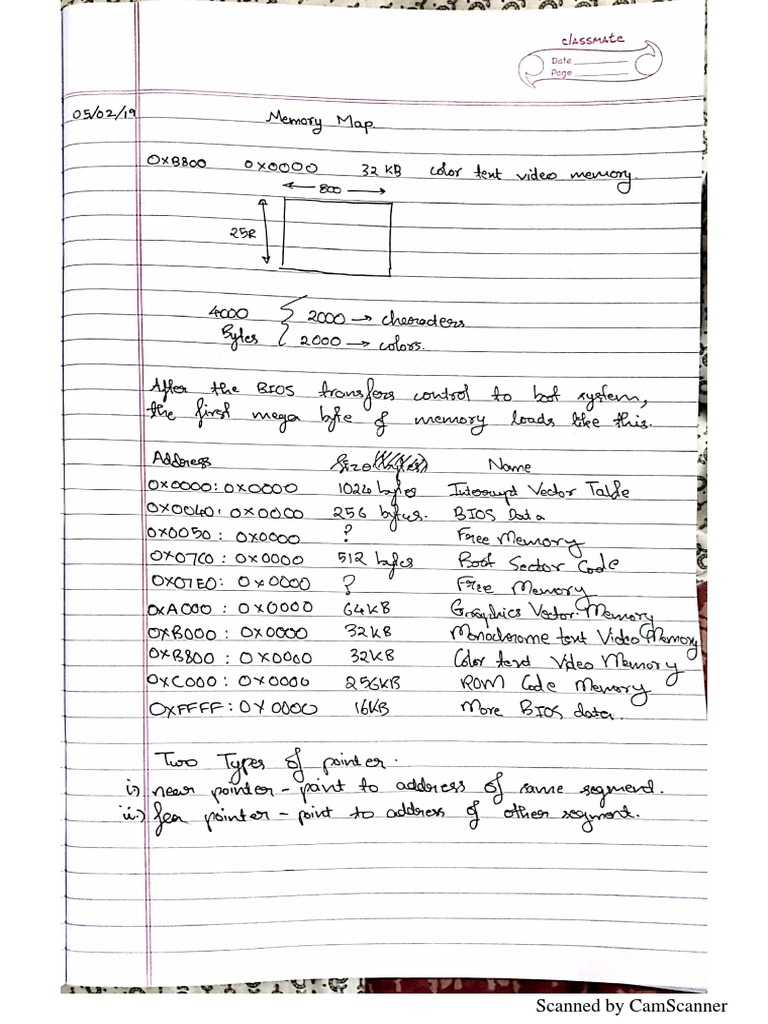 classmate
Date
Page
05/02/19
Memory Map
0XB800 0X0000 32 KB color text video memory.
800
25R
4000 2000 → characters
Bytes 2000 → colors.
After the BIOS transfers control to boot system,
the first mega byte of memory loads like this.
Address Size Name
0X0000: 0X0000 1024 bytes Interrupt Vector Table
0X0040: 0X0000 256 bytes. BIOS Data
0X0050 : 0X0000 ? Free Memory
0X07C0 : 0X0000 512 bytes Boot Sector Code
0X07E0: 0X0000 ? Free Memory
0XA000 : 0X0000 64KB Graphics Vector Memory
0XB000 : 0X0000 32KB Monochrome text Video Memory
0XB800 : 0X0000 32KB Color text Video Memory
0XC000 : 0X0000 256KB ROM Code Memory
0XFFFF : 0X0000 16KB More BIOS data.
Two Types of pointer.
i) near pointer - point to address of same segment.
ii.) far pointer - point to address of other segment.
Scanned by CamScanner